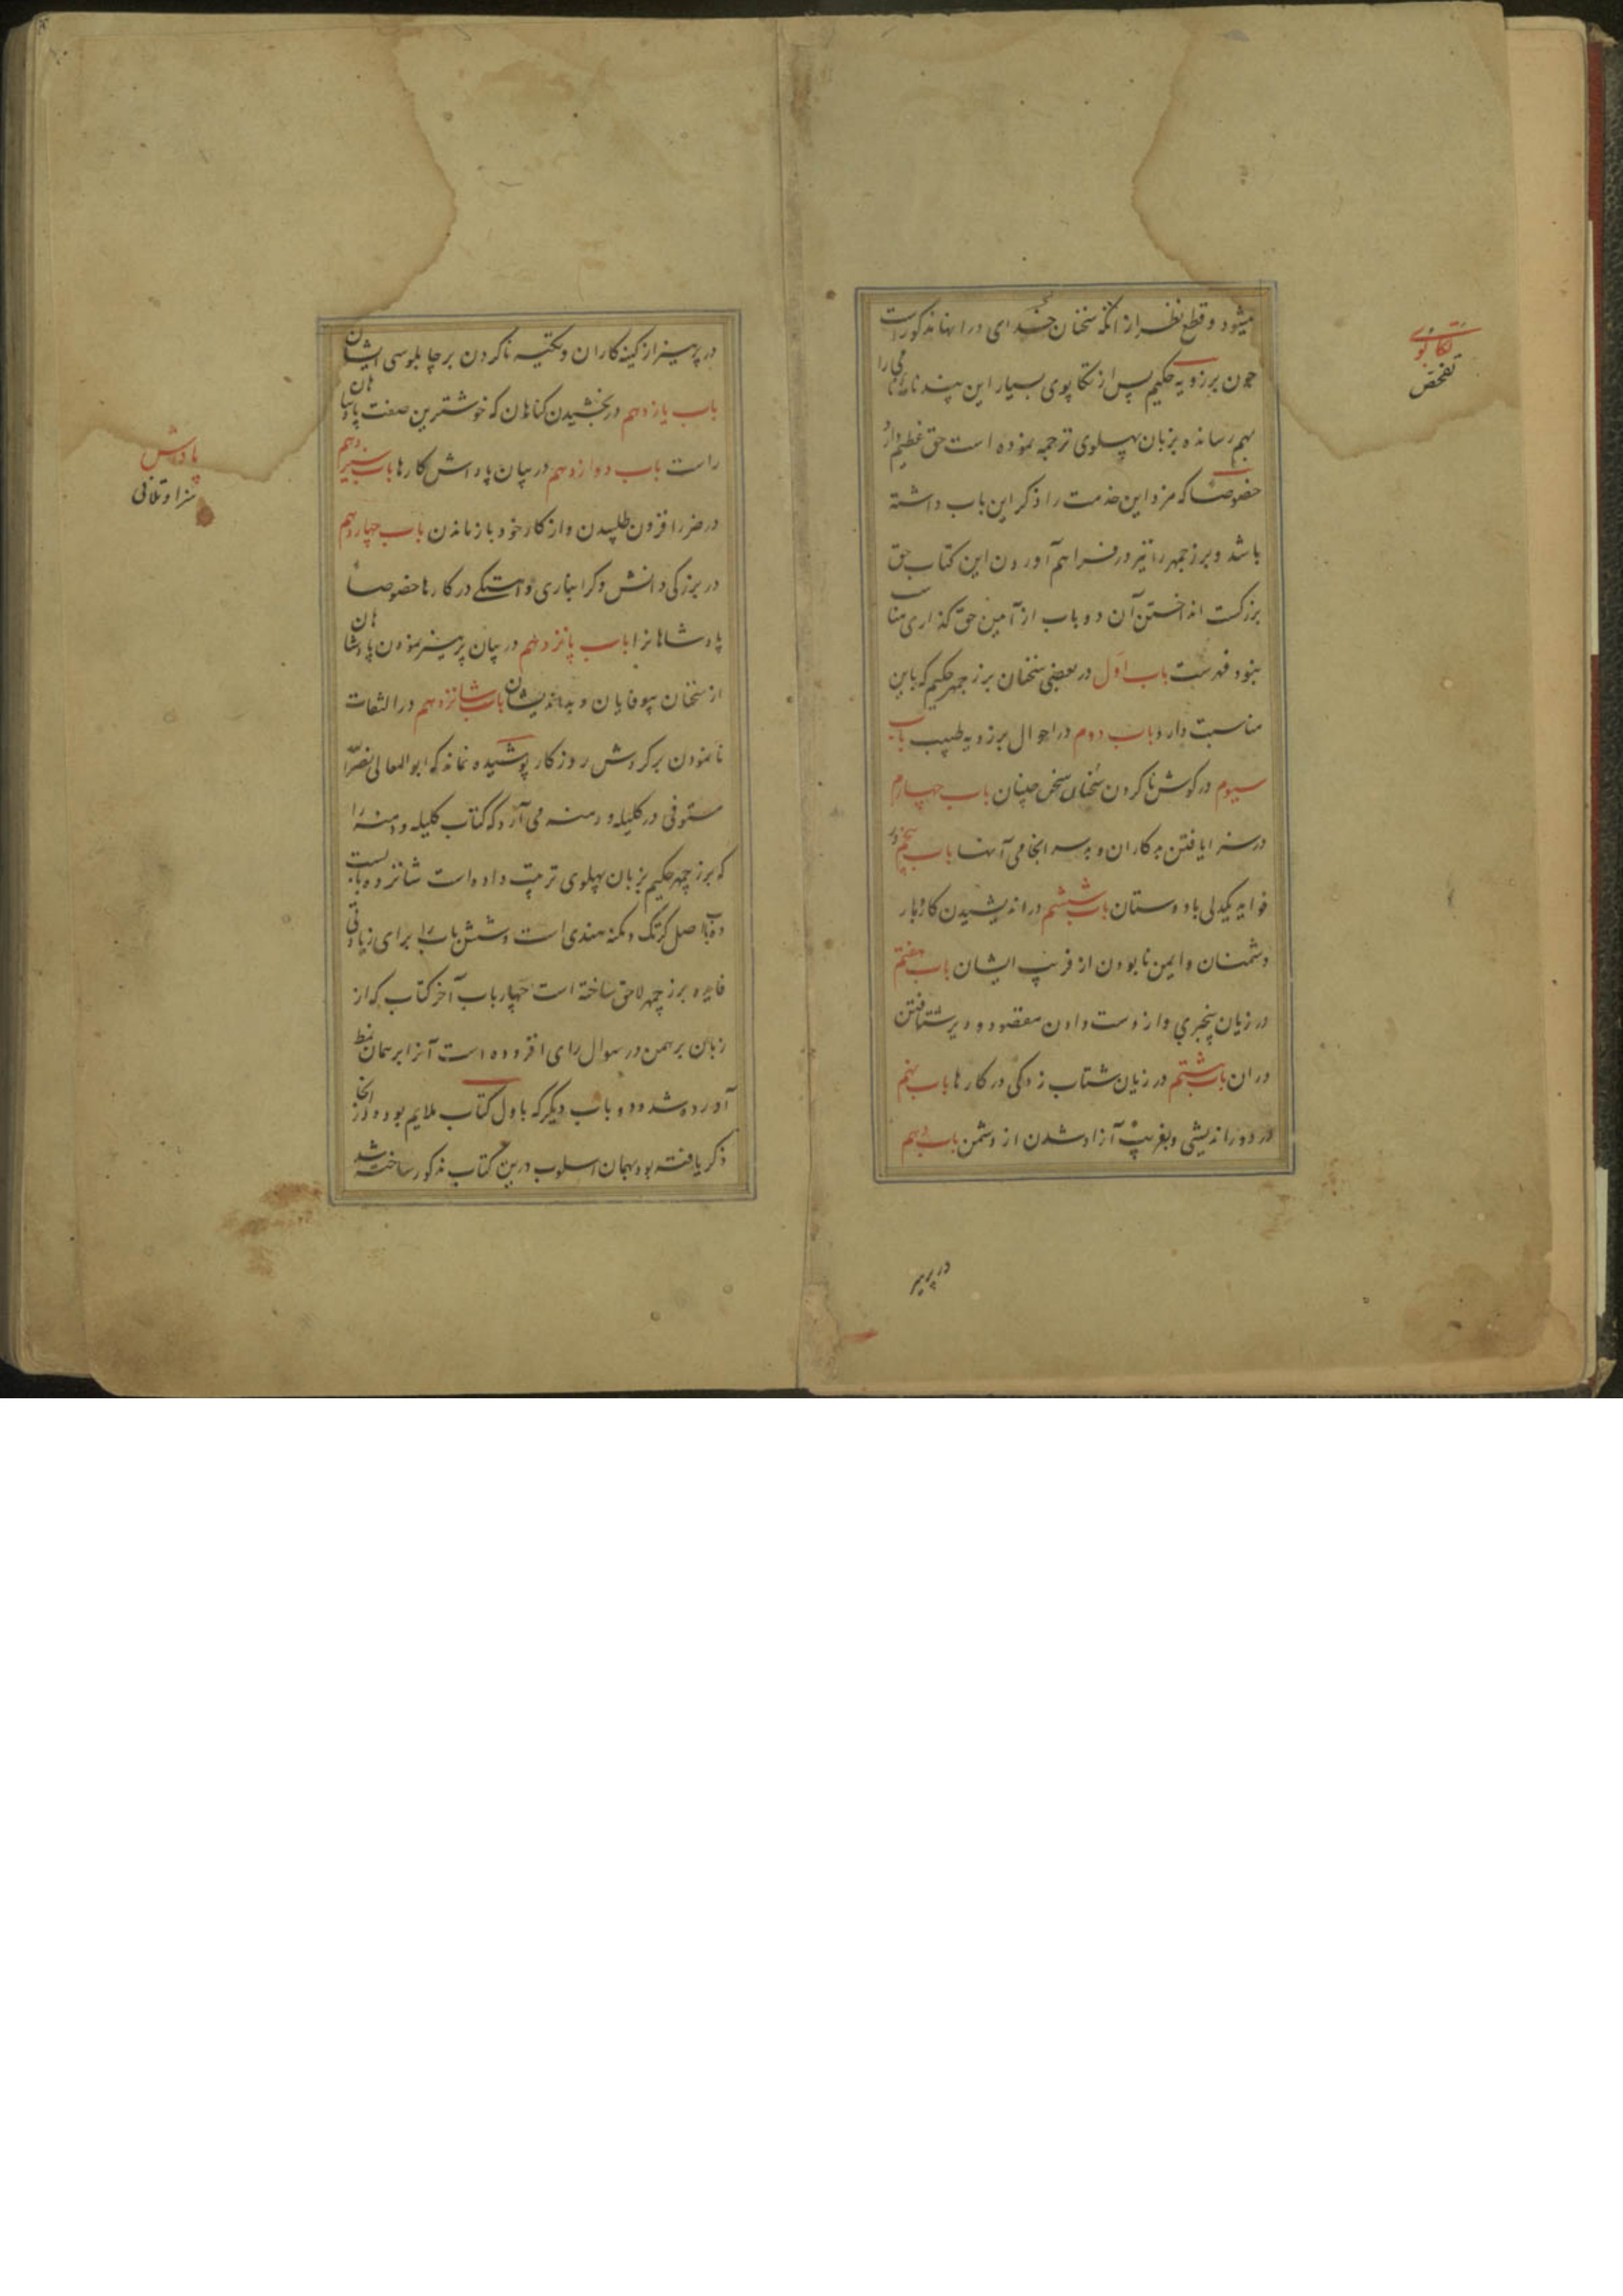 میشود و قطع نظر از آنکه سخنان چند ای در اینها مذکور است
چون برزویه حکیم پس از تکاپوی بسیار این پندنامه نامی را
بهم رسانده بزبان پهلوی ترجمه نموده است حق عظیم دارد
خصوصاً که مزد این خدمت را ذکر این باب داشته
باشد و بزرجمهر را نیز در فراهم آوردن این کتاب حق
بزرگست انداختن آن دو باب از آئین حق گذاری مناسب
ننمود فهرست باب اول در بعضی سخنان بزرجمهر حکیم که باین
مناسبت دارد باب دوم در احوال برزویه طبیب باب
سیوم در گوش ناکردن سخنان سخن چینان باب چهارم
در سزا یافتن بدکاران و بد سرانجامی آنها باب پنجم در
فواید یکدلی با دوستان باب ششم در اندیشیدن کاروبار
دشمنان و ایمن نابودن از فریب ایشان باب هفتم
در زیان بیخبری و از دست دادن مقصود و دیر شتافتن
در ان باب هشتم در زیان شتاب زدگی در کارها باب نهم
در دوراندیشی و بفریب آزاد شدن از دشمن باب دهم
در پرهیز
تکاپوی
تفحص
در پرهیز از کینه کاران و تکیه ناکردن بر چاپلوسی ایشان
باب یازدهم در بخشیدن گناهان که خوشترین صفت پادشاهان
راست باب دوازدهم در بیان پاداش کارها باب سیزدهم
در ضرر افزون طلبیدن و از کار خود بازماندن باب چهاردهم
در بزرگی دانش و گرانباری و آهستگی در کارها خصوصاً
پادشاهانرا باب پانزدهم در بیان پرهیز نمودن پادشاهان
از سخنان بیوفایان و بداندیشان باب شانزدهم در التفات
نانمودن بر گردش روزگار پوشیده نماند که ابوالمعالی نصرالله
مستوفی در کلیله و دمنه می آرد که کتاب کلیله و دمنه را
که بزرجمهر حکیم بزبان پهلوی ترتیب داده است شانزده بابست
ده باب اصل کرتک و دمنه هندی است و شش باب را برای زیادتی
فایده بزرجمهر لاحق ساخته است چهار باب آخر کتاب که از
زبان برهمن در سوال رای افزوده است آنرا بر همان نمط
آورده شد و دو باب دیگر که باول کتاب ملایم بود و در انجا
ذکر یافته بود بهمان اسلوب درین کتاب مذکور ساخته شد
پاداش
سزا و تلافی